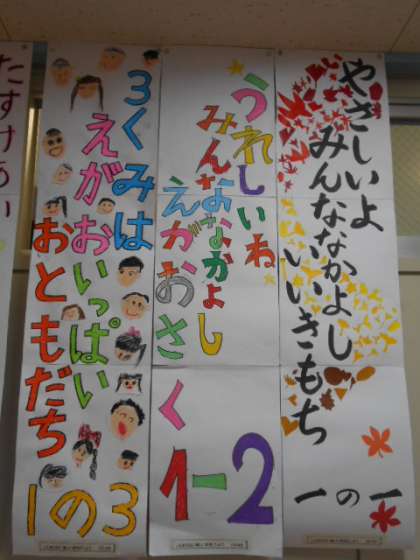 やさしいよ
みんななかよし
いいきもち
一の一
うれしいね
みんななかよし
えがおさく
1-2
3くみは
えがおいっぱい
おともだち
1の3
たすけあい